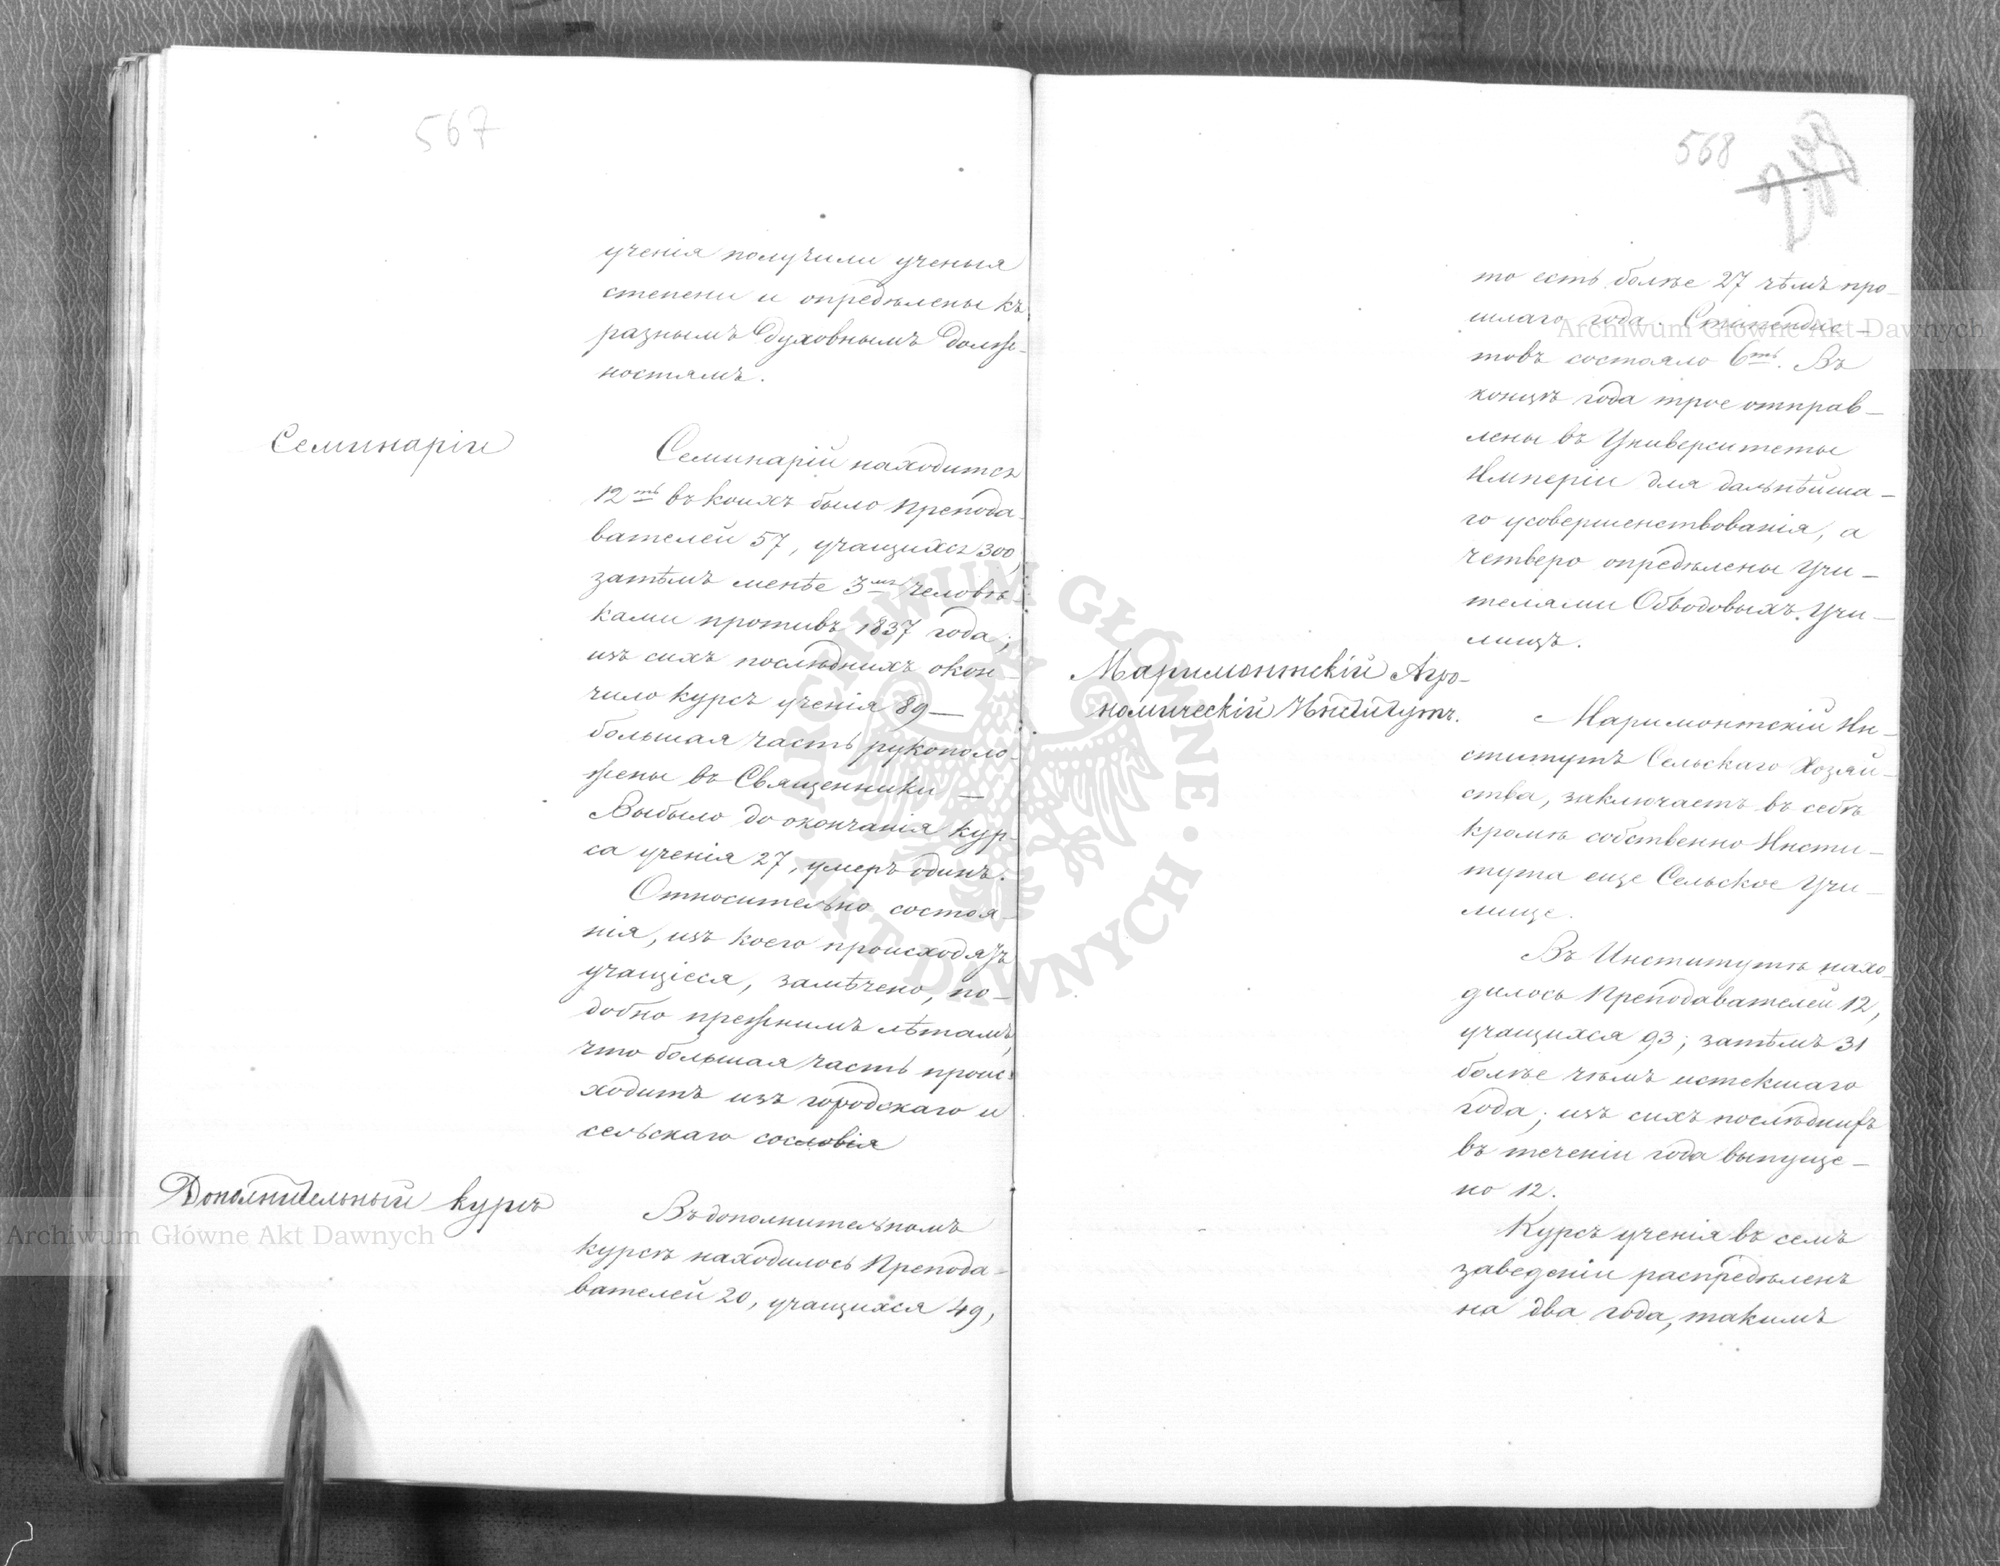 567
ученія получили ученыя
степени и опредѣлены къ
разнымъ духовнымъ долж-
ностямъ.
Семинаріи
Семинарій находится
12ть въ коихъ было Препода-
вателей 57, учащихся 300,
затѣмъ менѣе 3мя человѣ-
ками противъ 1837 года;
изъ сихъ послѣднихъ окон-
чило курсъ ученія 89—
большая часть рукополо-
жены въ Священники —
Выбыло до окончанія кур-
са ученія 27, умеръ одинъ.
Относительно состоя-
нія, изъ коего происходятъ
учащіеся, замѣчено, по-
добно прежнимъ лѣтамъ,
что большая часть проис-
ходитъ изъ городскаго и
сельскаго сословія
Дополнительный курсъ
Въ дополнительномъ
курсѣ находилось Препода-
вателей 20, учащихся 49,
568
то есть болѣе 27 чѣмъ про-
шлаго года. Стипендіс-
товъ состояло 6ть. Въ
концѣ года трое отправ-
лены въ Университеты
Имперіи для дальнѣйша-
го усовершенствованія, а
четверо опредѣлены Учи-
телями Обводовыхъ Учи-
лищъ.
Маримонтскій Агро-
номическій Институтъ.
Маримонтскій Ин-
ститутъ Сельскаго Хозяй-
ства, заключаетъ въ себѣ
кромѣ собственно Инсти-
тута еще Сельское Учи-
лище.
Въ Институтѣ нахо-
дилось Преподавателей 12,
учащихся 93; затѣмъ 31
болѣе чѣмъ истекшаго
года; изъ сихъ послѣднихъ
въ теченіи года выпуще-
но 12.
Курсъ ученія въ семъ
заведеніи распредѣленъ
на два года, такимъ
Archiwum Główne Akt Dawnych
Archiwum Główne Akt Dawnych
ARCHIWUM GŁÓWNE AKT DAWNYCH